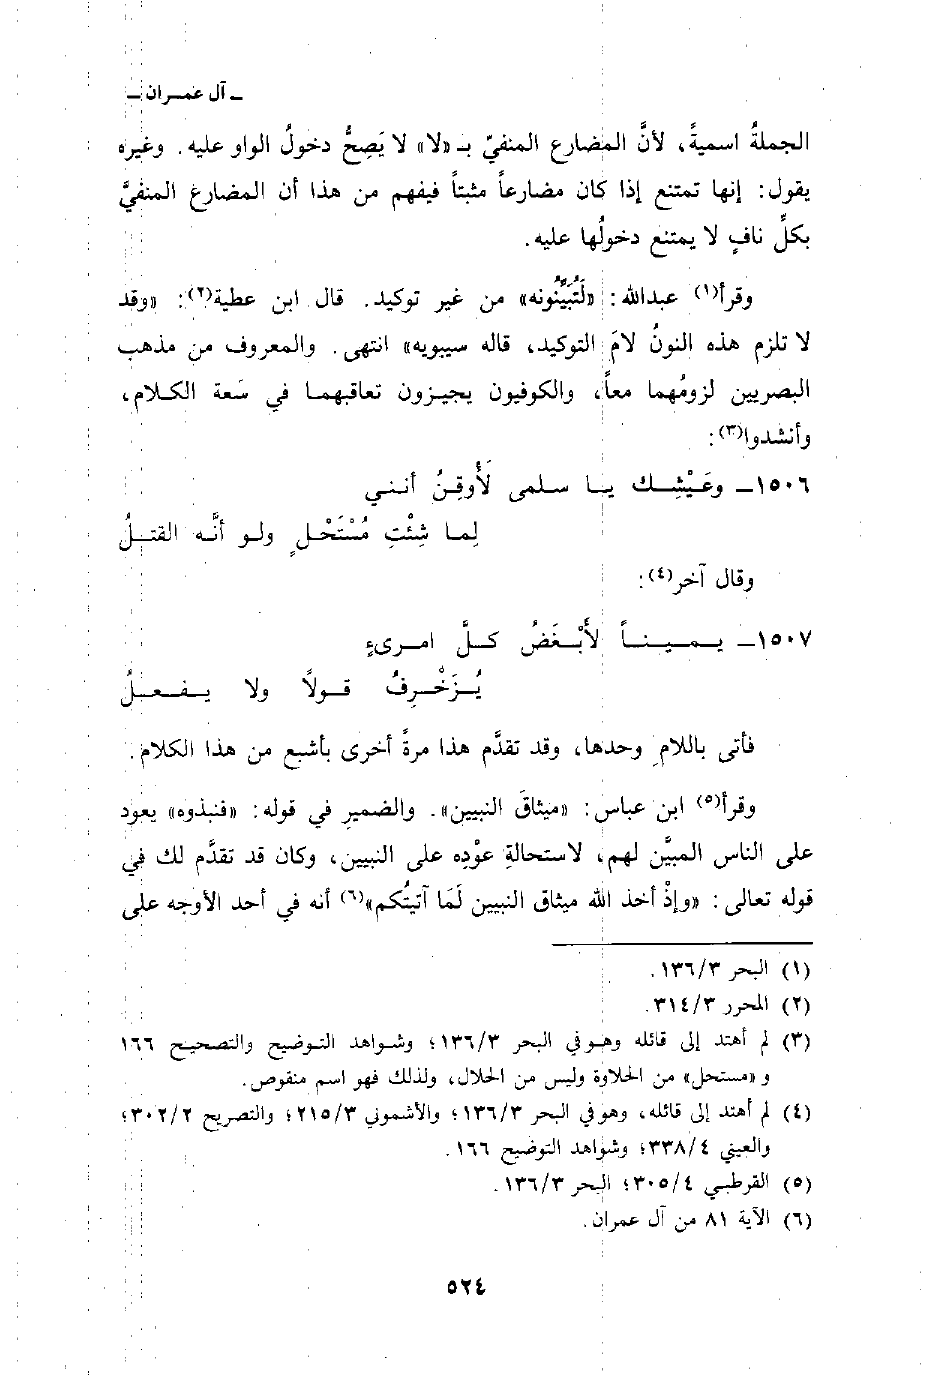 ـ آل عمـران ـ
الجملةُ اسميةً، لأنَّ المضارع المنفيّ بـ «لا» لا يَصِحُّ دخولُ الواو عليه. وغيره
يقول: إنها تمتنع إذا كان مضارعاً مثبتاً فيفهم من هذا أن المضارع المنفيَّ
بكلِّ نافٍ لا يمتنع دخولُها عليه.
وقرأ(١) عبدالله: «لَتُبَيِّنُونه» من غير توكيد. قال ابن عطية(٢): «وقد
لا تلزم هذه النونُ لامَ التوكيد، قاله سيبويه» انتهى. والمعروف من مذهب
البصريين لزومُهما معاً، والكوفيون يجيـزون تعاقبهمـا في سَعة الكـلام،
وأنشدوا(٣):
١٥٠٦ـ وعَـيْشِـك يـا سـلمى لَأُوقِـنُ أنـنـي
لِمـا شِئْتِ مُسْتَحْـلٍ ولـو أنَّـه القتـلُ
وقال آخر(٤):
١٥٠٧ـ يـمـيـنـاً لأُبْـغَـضُ كـلَّ امـرىءٍ
يُـزَخْـرِفُ قـولاً ولا يـفـعـلُ
فأتى باللامِ وحدها، وقد تقدَّم هذا مرةً أخرى بأشبع من هذا الكلام.
وقرأ(٥) ابن عباس: «ميثاقَ النبيين». والضمير في قوله: «فنبذوه» يعود
على الناس المبيَّن لهم، لاستحالةِ عوْدِه على النبيين، وكان قد تقدَّم لك في
قوله تعالى: «وإذْ أخذ الله ميثاق النبيين لَمَا آتيتُكم»(٦) أنه في أحد الأوجه على
(١) البحر ١٣٦/٣.
(٢) المحرر ٣١٤/٣.
(٣) لم أهتد إلى قائله وهـو في البحر ١٣٦/٣؛ وشـواهد التـوضيح والتصحيح ١٦٦
و «مستحل» من الحلاوة وليس من الحلال، ولذلك فهو اسم منقوص.
(٤) لم أهتد إلى قائله، وهو في البحر ١٣٦/٣؛ والأشموني ٢١٥/٣؛ والتصريح ٣٠٢/٢؛
والعيني ٣٣٨/٤؛ وشواهد التوضيح ١٦٦.
(٥) القرطبي ٣٠٥/٤؛ البحر ١٣٦/٣.
(٦) الآية ٨١ من آل عمران.
٥٢٤